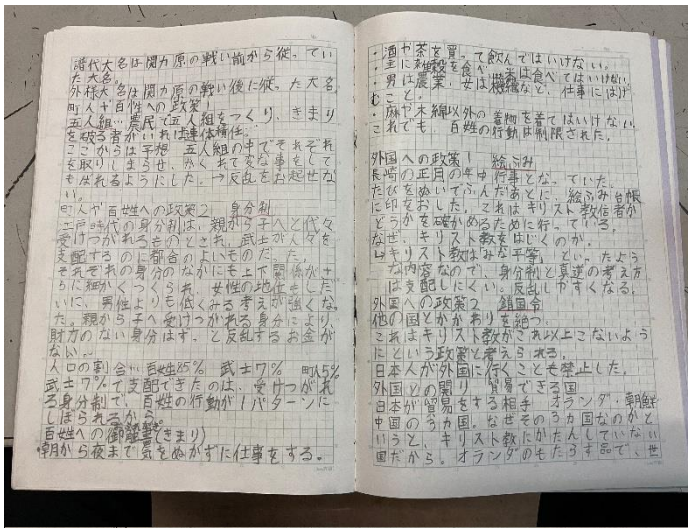 譜代大名は関ヶ原の戦い前から従ってい
た大名。
外様大名は関ヶ原の戦い後に従った大名。
町人や百姓への政策1
五人組…農民で五人組をつくり、きまり
を破る者がいれば連体積任。
ここからは予想 五人組の中でそれぞれ
を取りしまらせ、かくれて変な事をして
もばれるようにした。→反乱をお起せな
い。
町人や百姓への政策2 身分制
江戸時代の身分制は、親から子へと代々
受けつがれるものとされ、武士が人々を
支配するのに都合のよいものだった。
それぞれの身分のなかにも上下関係がさ
らに細かくつくられ、女性の地位もした
いに、男性よりも低くみる考えが強くな
た。親から子へ受けつがれる身分により、
財力のない身分はずっと反乱するお金が
ない〜
人口の割合…百姓85% 武士7% 町人5%
武士7%で支配できたのは、受けつがれ
る身分制で、百姓の行動が1パターンに
しばられるから
百姓への御触書(きまり)
・朝から夜まで気をぬかずに仕事をする。
・酒や茶を買って飲んではいけない。
・主に雑穀を食べ、米は食べてはいけない。
・男は農業、女は機織など、仕事にはげ
むこと。
・麻や木綿以外の着物を着てはいけない。
これでも、百姓の行動は制限された。
外国への政策1 絵ふみ
長崎の正月の年中行事となっていた。
たびをぬいでふんだあとに、絵ふみ台帳
に印をおした。これはキリスト教信者か
どうかを確かめるために行っている。
なぜ、キリスト教をはじくのか。
↳キリスト教はみな平等、といったよう
な内容なので、身分制と真逆の考え方
は支配しにくい。反乱しやすくなる。
外国への政策2 鎖国令
他の国とかかわりを絶つ。
これはキリスト教がこれ以上こないよう
にという政策と考えられる。
日本人が外国に行くことも禁止した。
外国との関り 貿易できる国
日本が貿易をする相手 オランダ・朝鮮
中国の3カ国。なぜその3カ国なのかと
いうと、キリスト教にかたんしていない
国だから。オランダのもたらす品で、世